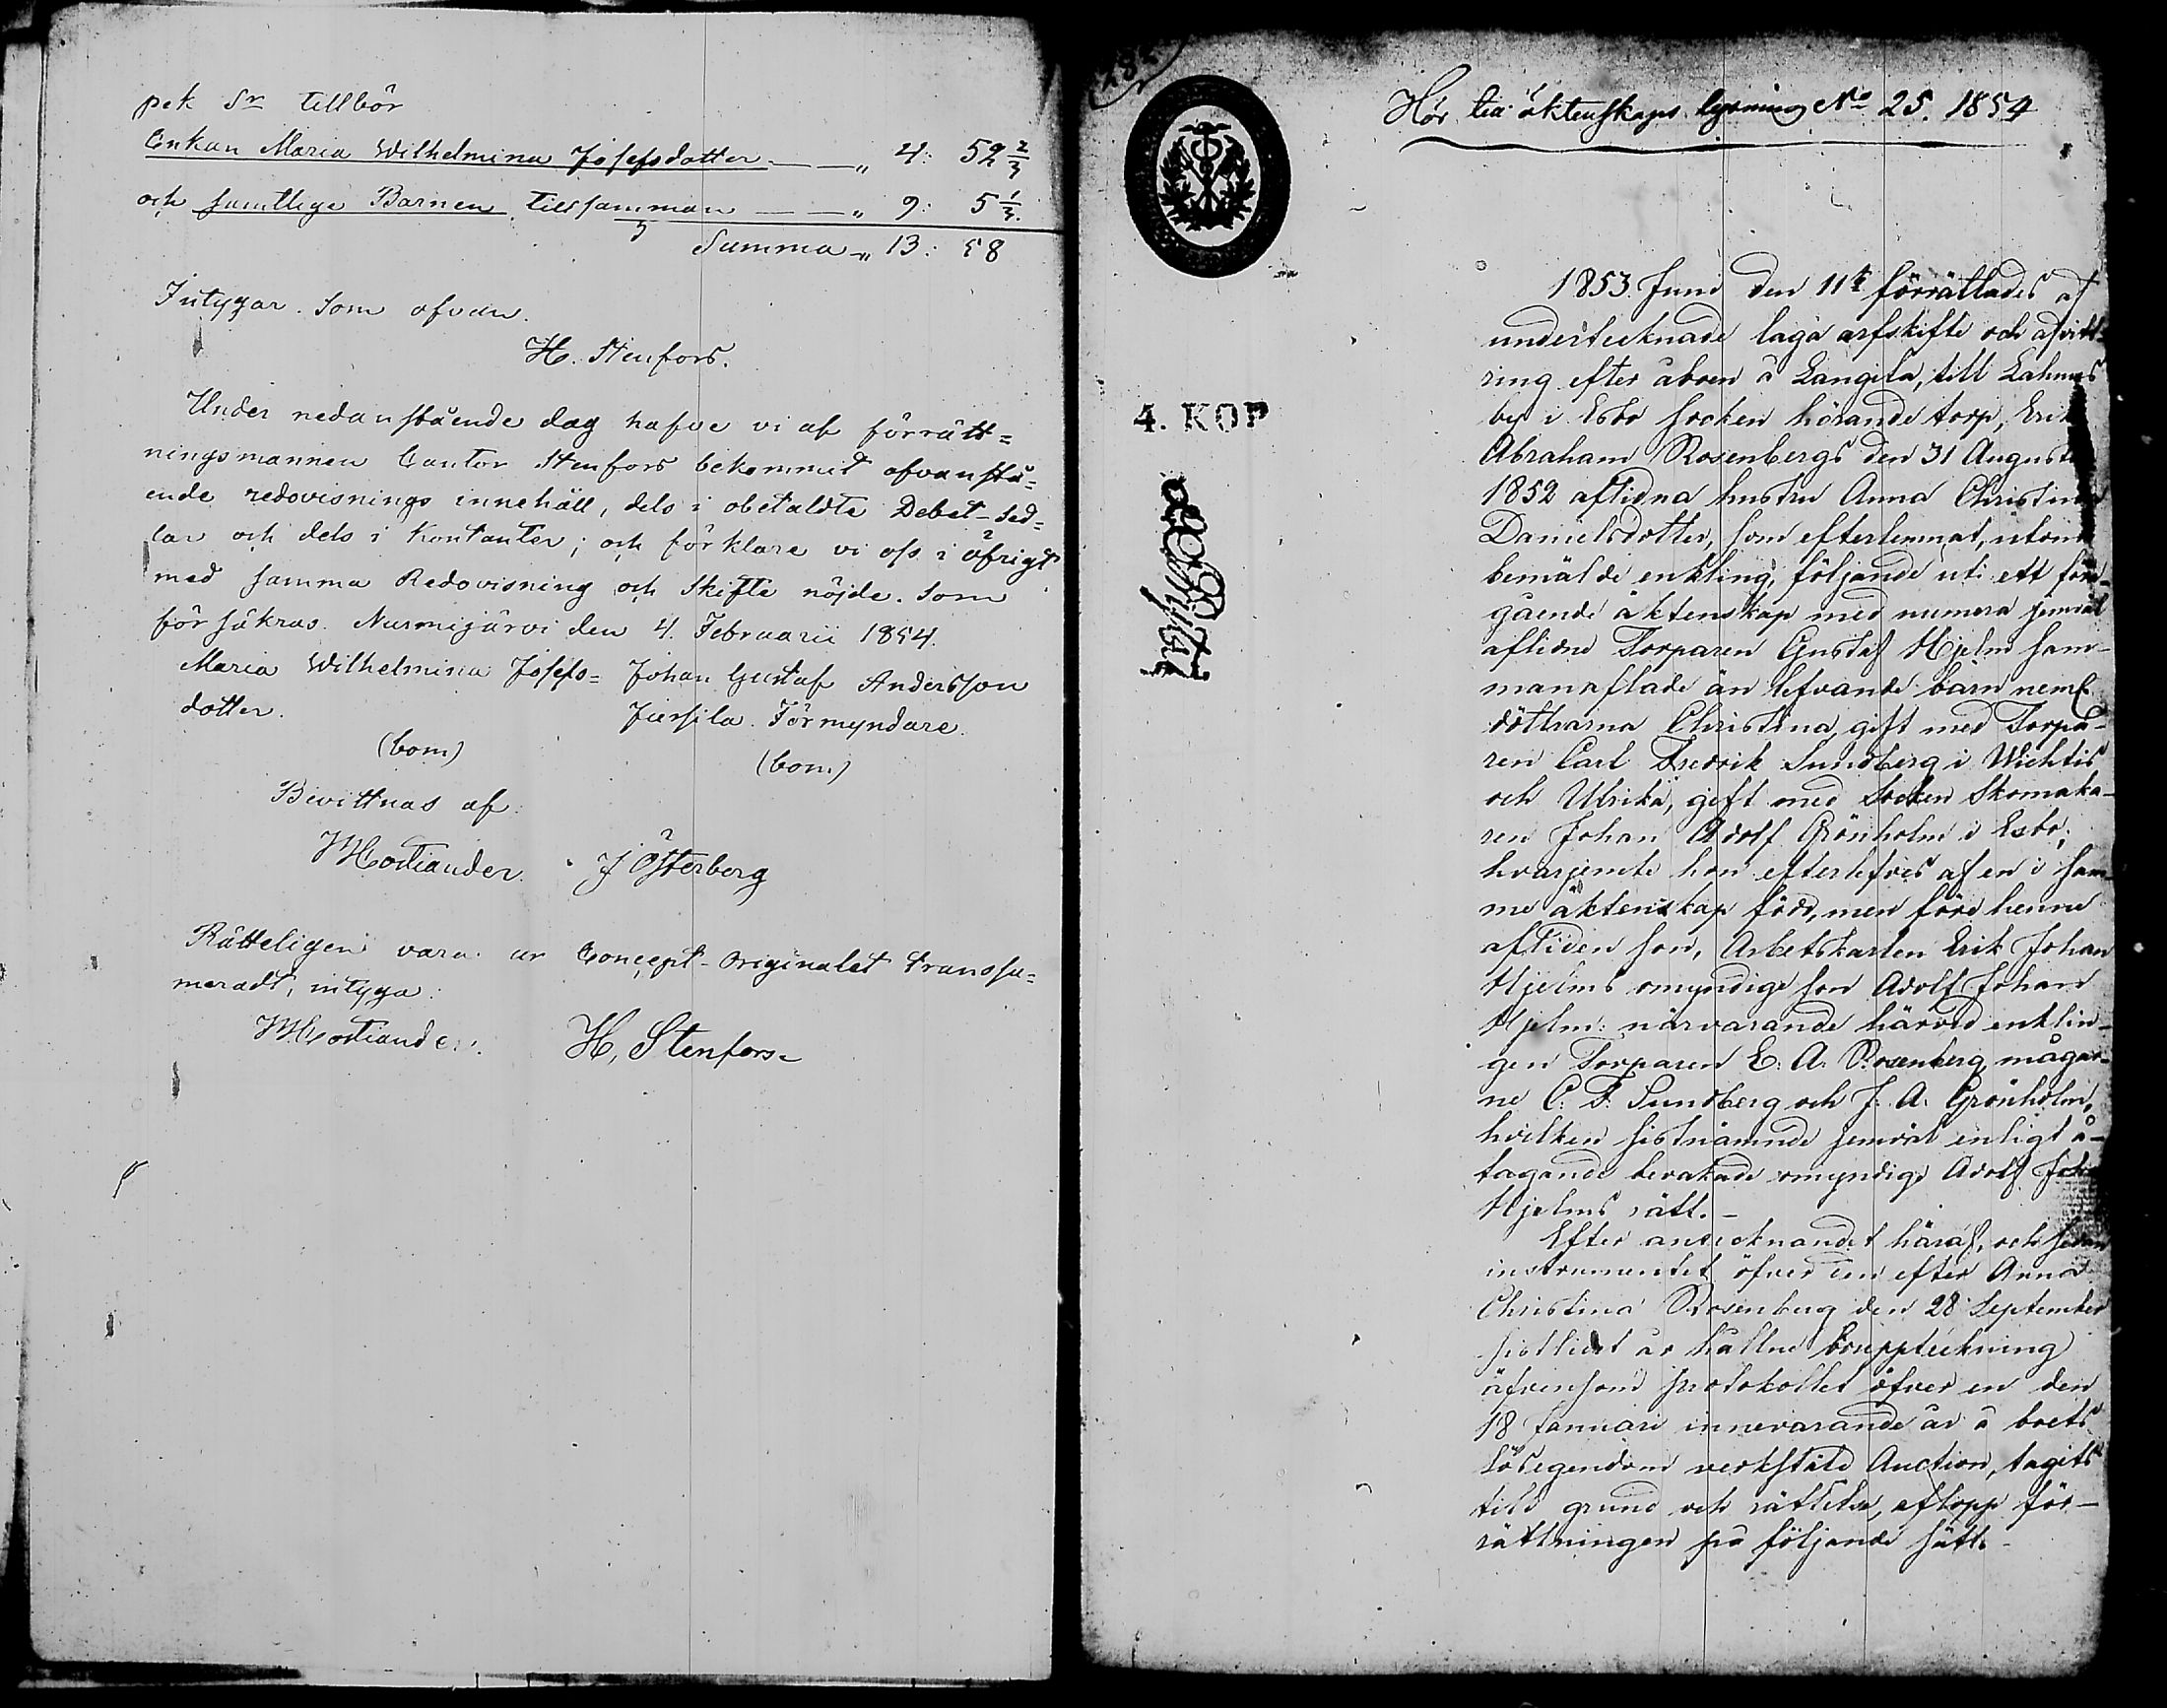 pek Sr tillbör
Enkan Maria Wilhelmina Josefsdotter — — „ 4: 52 2/3
och samtlige Barnen tillsamman — — „ 9: 5 1/3.
Summa „ 13: 58
Intygar. Som ofvan.
H. Stenfors.
Under nedanstående dag hafve vi af förrätt=
ningsmannen Cantor Stenfors bekommit ofvanstå=
ende redovisnings innehåll, dels i obetaldte Debet-Sed=
lar och dels i Kontanter; och förklare vi oss i öfrigt
med samma Redovisning och Skifte nöjde. Som
försäkras. Nurmijärvi den 4. Februarii 1854.
Maria Wilhelmina Josefs= Johan Gustaf Andersson
dotter. Förmyndare.
(bom) (bom)
Bevittnas af:
J Österberg
Rätteligen vara ur Concept-Originalet transsu=
meradt, intyga:
H, Stenfors
282
Hör till äktenskaps lysning No 25. 1854
4. KOP
1853 Juni den 11te förrättades af
undertecknade laga arfskifte och afvitt-
ring efter åboen å Langila, till Lahnus
by i Esbo socken hörande torp, Erik
Abraham Rosenbergs den 31 Augusti
1852 aflidna hustru Anna Christina
Danielsdotter, som efterlemnat, utom
bemälde enkling, följande uti ett före-
gående äktenskap med numera jemväl
aflidne Torparen Gustaf Hjelm sam-
manaflade än lefvande barn neml
döttrarna Christina, gift med Torpa-
ren Carl Fredrik Sundberg i Wichtis
och Ulrika, gift med Socken Skomaka-
ren Johan Adolf Grönholm i Esbo;
hvarjemte hon efterlefves af en i sam-
me äktenskap född, men före henne
afliden son, Arbetskarlen Erik Johan
Hjelms omyndige son Adolf Johan
Hjelm: närvarande härvid enklin-
gen Torparen E. A. Rosenberg, mågar-
ne C. F. Sundberg och J. A. Grönholm,
hvilken sistnämnde jemväl enligt å-
tagande bevakade omyndige Adolf Joh
Hjelms rätt. –
Efter antecknandet häraf, och sedan
instrumentet öfver en efter Anna
Christina Rosenberg den 28 September
sistlidet år hållne bouppteckning
äfvensom protokollet öfver en den
18 Januari innevarande år å boets
lösegendom verkstäld Auction, tagits
till grund och rättelse, aflopp för-
rättningen på följande sätt. –